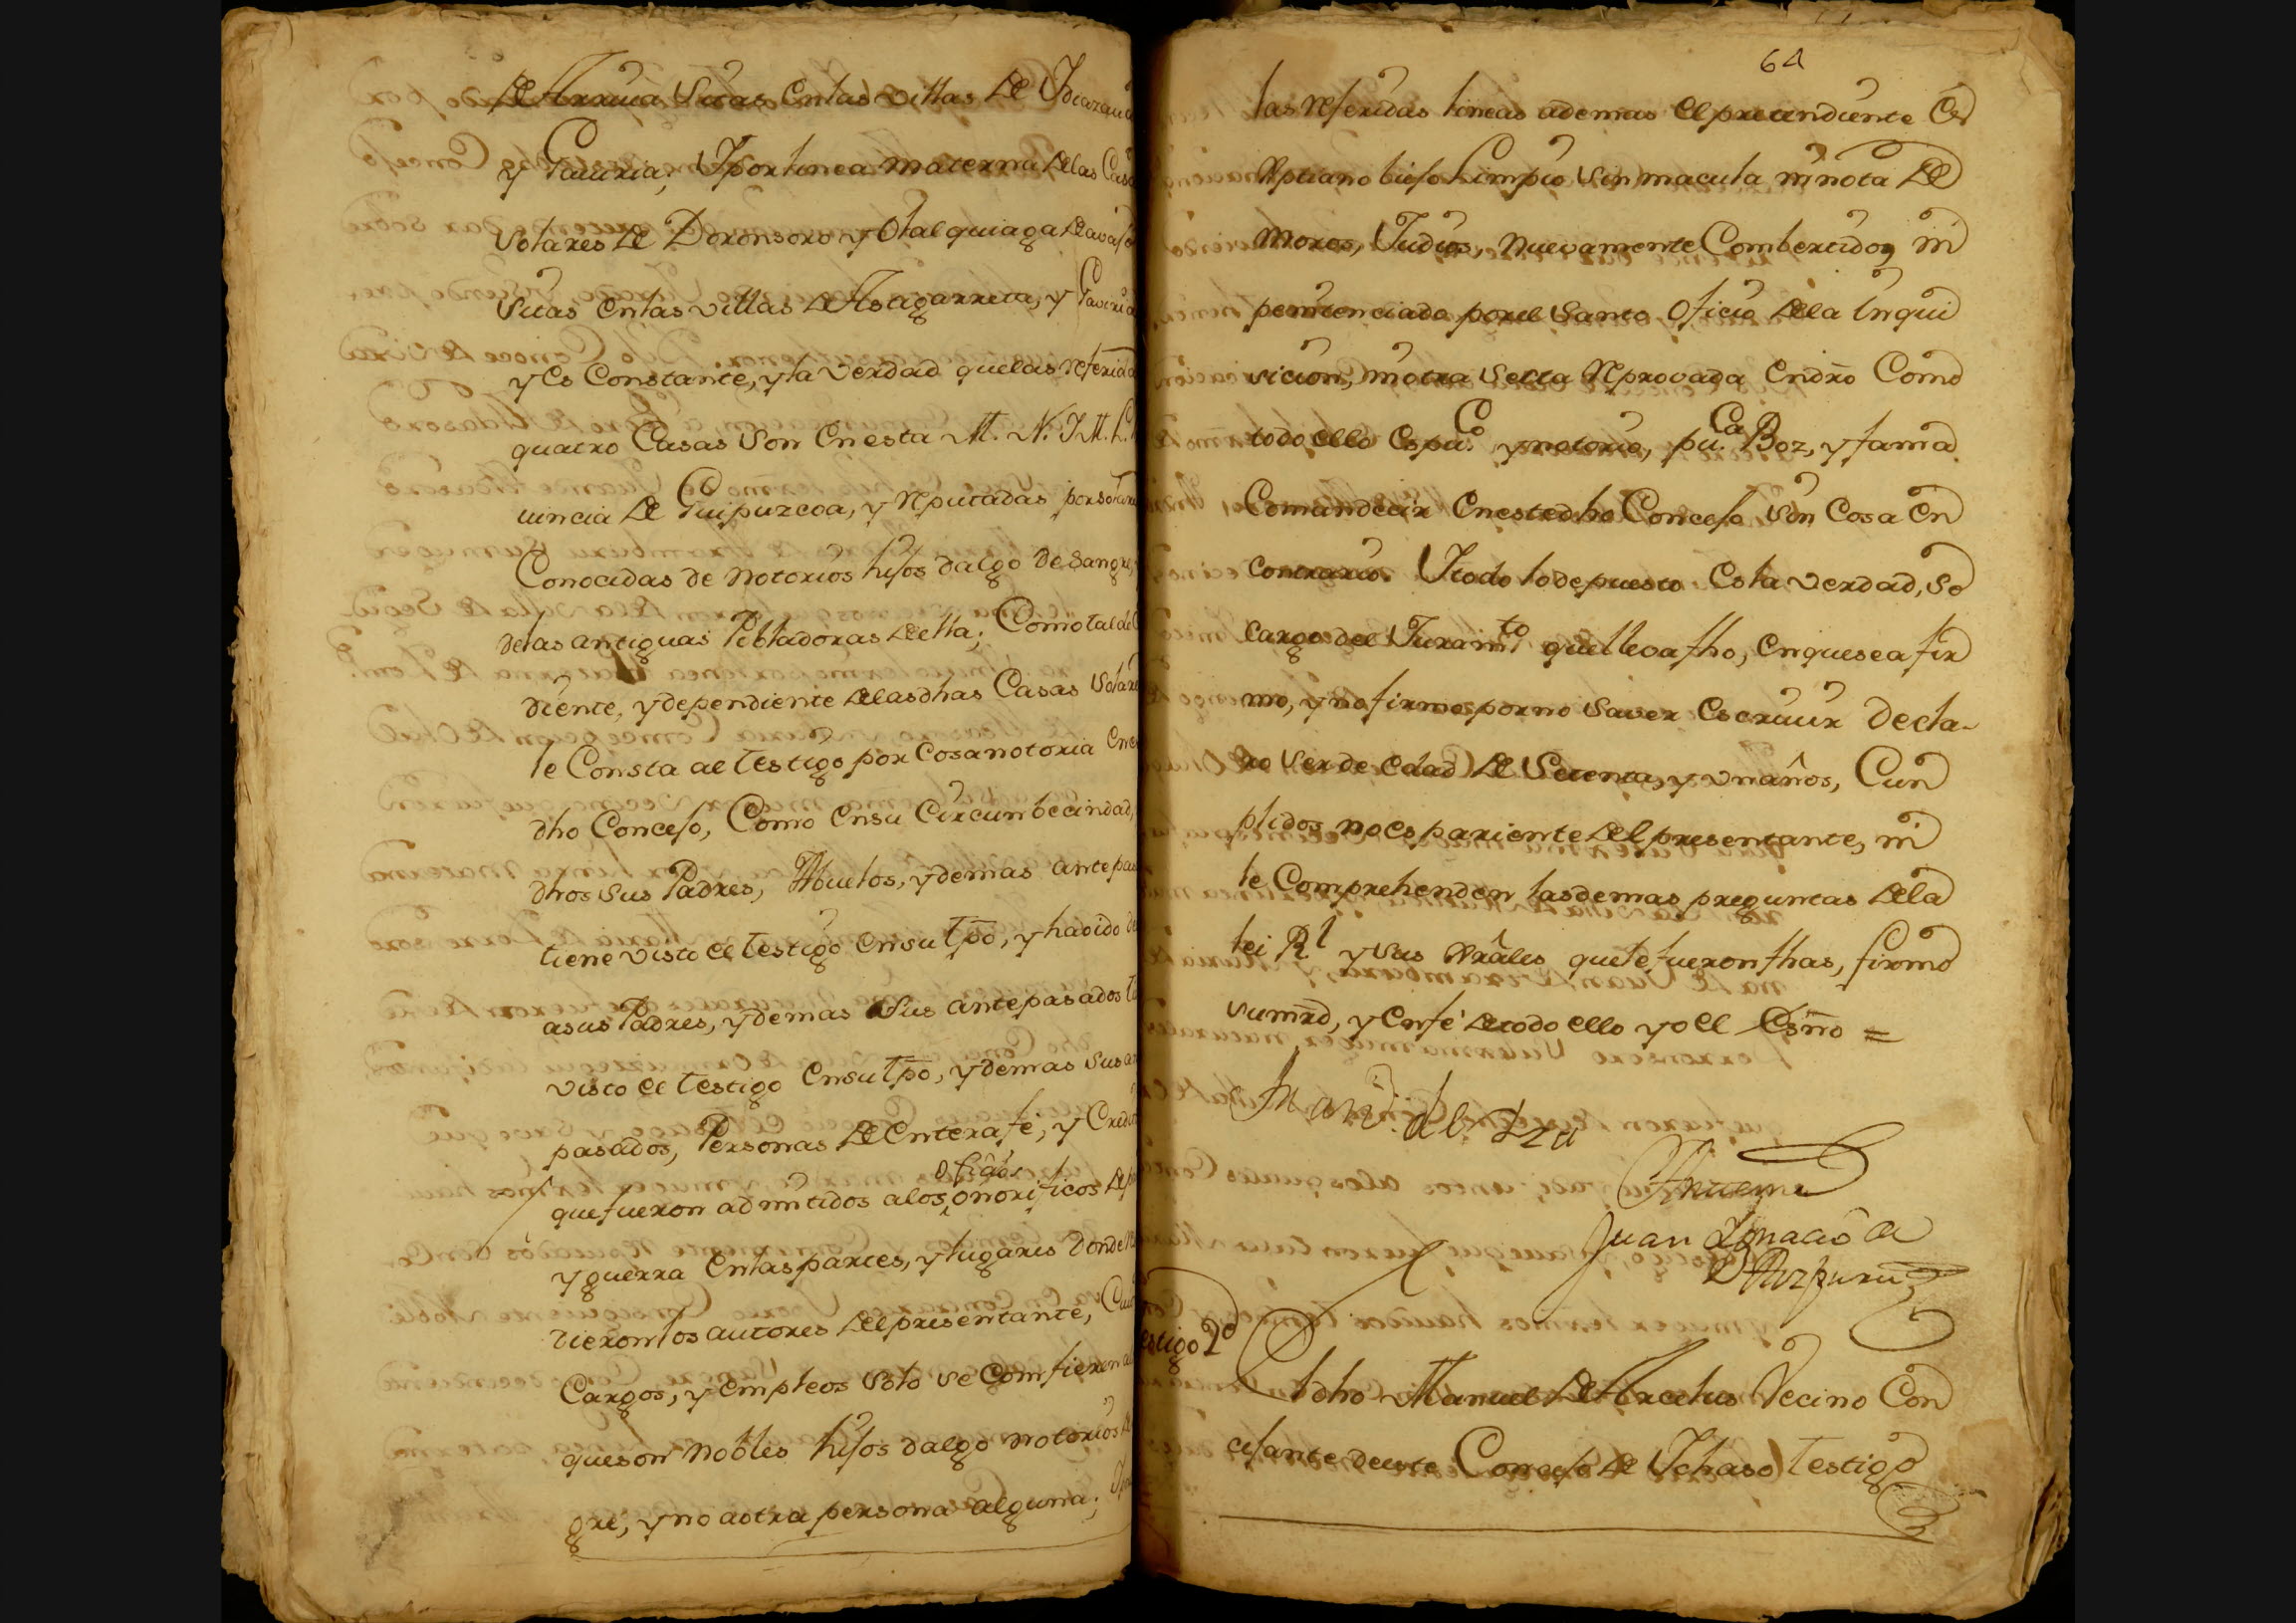 de Arrua sitas en las villas de Ydiazau
y Gaviria; Y por linea materna de las Cas
solares de Doronsoro y Olalquiaga de avajo
sitas en las villas de Astigarreta, y Gaviria
y es Constante, y la verdad que las referida
quatro Casas son en esta M. N. Y M. L.
vincia de Guipuzcoa, y reputadas por solar
Conocidas de Notorios hijos dalgo de sangre,
delas antiguas Pobladoras de ella; Como tal de
diente, y dependiente de las dhas Casas solare
le Consta al testigo por Cosa notoria en
dho Concejo, Como en su Circunbecindad,
dhos sus Padres, Abuelos, y demas antepa
tiene visto el testigo en su tpo, y havido
a sus Padres, y demas sus antepasados
visto el testigo en su tpo, y demas sus an
pasados, Personas de entera fe, y Credi
que fueron admitidos alos onorificos de p
oficios
y guerra en las partes, y lugares donde
vieron los autores del presentante,
Cargos, y empleos solo se Comfieren a
que son Nobles hijos dalgo notorios de
gre, y no a otra persona alguna;
64
las referidas lineas ademas el pretendiente es
Xptiano biejo Limpio sin macula ni nota de
Moros, Judios, Nuevamente Combertidos, ni
penitenciado por el Santo Oficio de la Inqui
sicion, ni otra secta reprovada en dro Como
todo ello es pu.Co y notorio, pu.Ca Boz, y fama
Comun decir en este dho Concejo sin Cosa en
contrario. Y todo lo depuesto es la verdad, so
cargo del Juram.to que lleva fho, en que se afir
mo, y no firmo por no saver escrivir decla-
ro ser de edad de Setenta, y un años, Cun
plidos no es pariente del presentante, ni
le Comprehenden las demas preguntas de la
lei Rl y sus Grales que le fueron fhas, firmo
su mrd, y en fe de todo ello yo el Esno =
Ante mi
Juan Ignacio de
Aizpuru
estigo 2º
El dho Manuel de Arcelus Vecino Con
cejante de este Concejo de Ychaso testigo